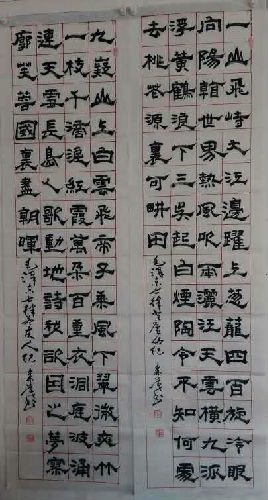 一山飛峙大江邊躍上蔥蘢四百旋冷眼
向陽看世界熱風吹雨灑江天雲橫九派
浮黃鶴浪下三吳起白煙陶令不知何處
去桃花源裏可畊田
毛澤東七律登廬
九嶷山上白雲飛帝子乘風下翠微斑竹
一枝千滴淚紅霞萬朵百重衣洞庭波涌
連天雪長島人歌動地詩我欲因之夢寥
廓芙蓉國裏盡朝暉
毛澤東七律答友人